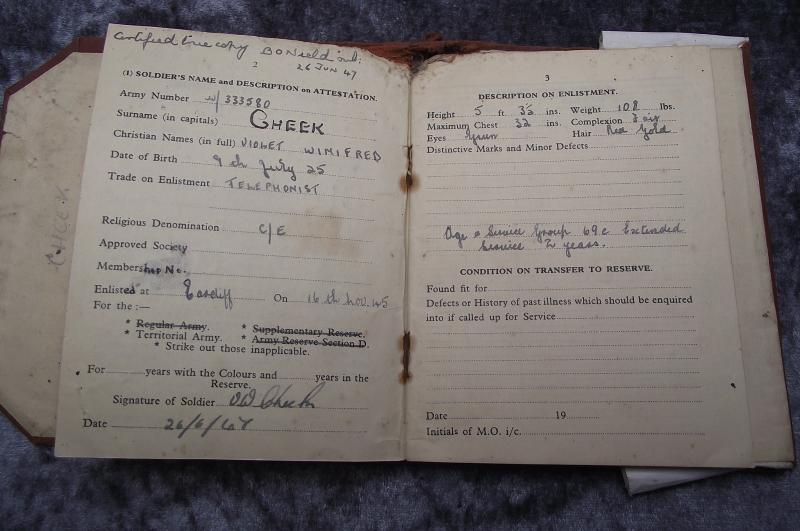 Certified true copy
26 JUN 47
2
(1) SOLDIER'S NAME and DESCRIPTION on ATTESTATION.
Army Number W/333580
Surname (in capitals) CHEEK
Christian Names (in full) VIOLET WINIFRED
Date of Birth 9th July 25
Trade on Enlistment TELEPHONIST
Religious Denomination C/E
Approved Society
Membership No.
Enlisted at Cardiff On 16th Nov. 45
For the :—
* Regular Army. * Supplementary Reserve.
* Territorial Army. * Army Reserve Section D.
* Strike out those inapplicable.
For years with the Colours and years in the
Reserve.
Signature of Soldier VW Cheek
Date 26/6/47
CHEEK
3
DESCRIPTION ON ENLISTMENT.
Height 5 ft. 3½ ins. Weight 108 lbs.
Maximum Chest 32 ins. Complexion Fair
Eyes Green Hair Red Gold
Distinctive Marks and Minor Defects
Age & Service Group 69c Extended
Service 2 years.
CONDITION ON TRANSFER TO RESERVE.
Found fit for
Defects or History of past illness which should be enquired
into if called up for Service
Date 19
Initials of M.O. i/c.